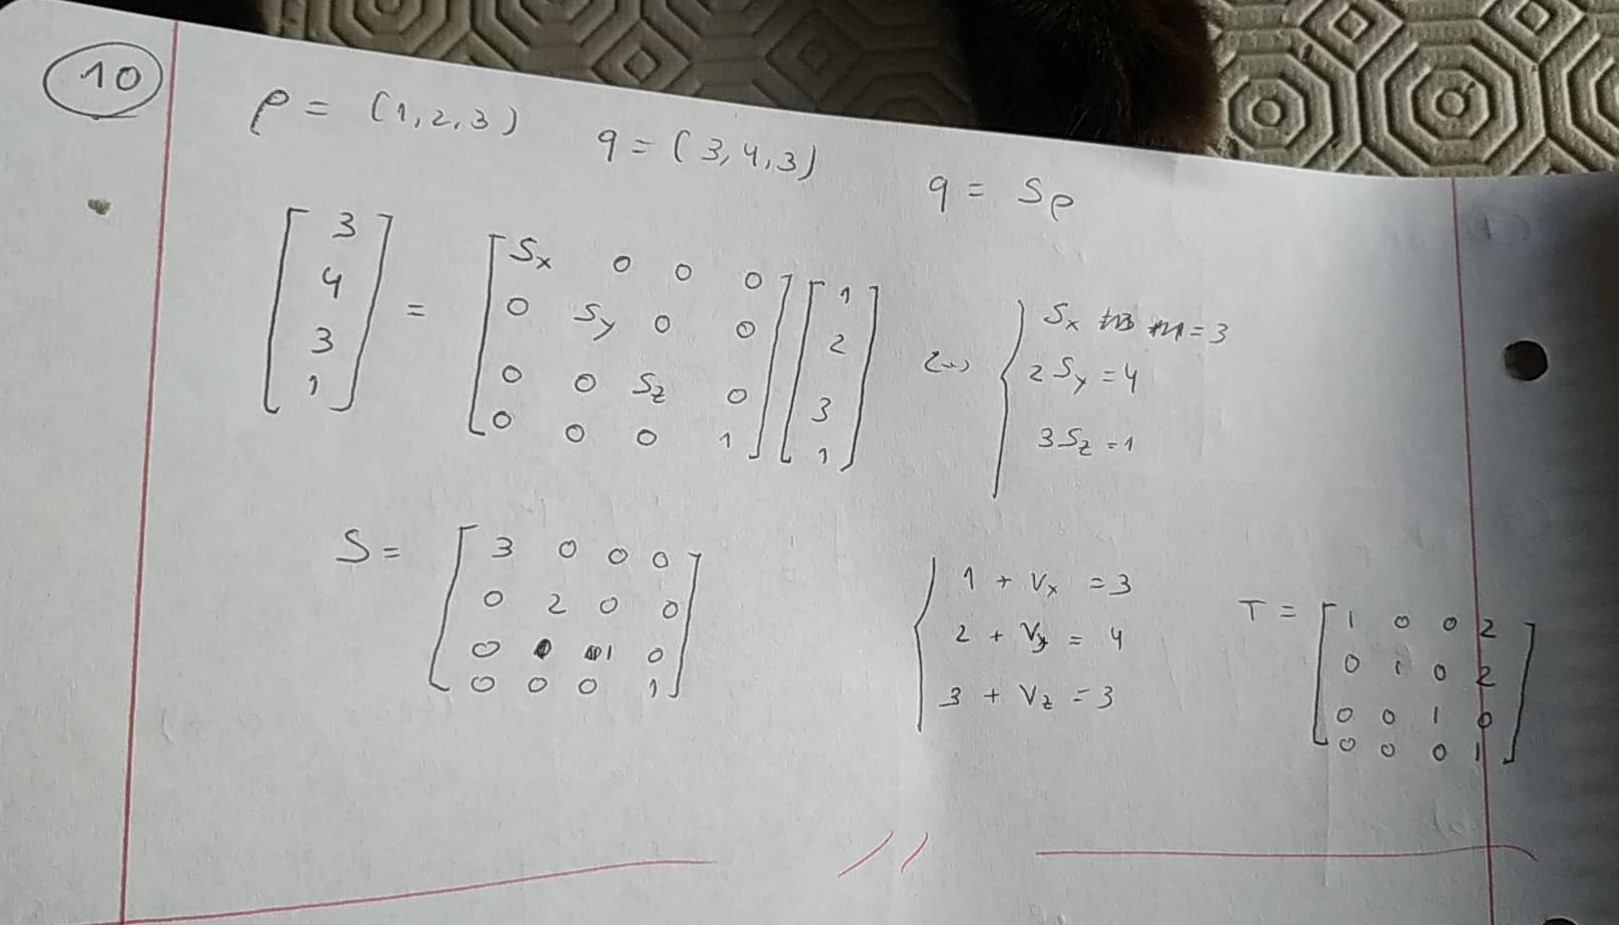 10
ρ = (1,2,3) q = (3,4,3) q = Sρ
[3 4 3 1] = [Sx 0 0 0 0 Sy 0 0 0 0 Sz 0 0 0 0 1] [1 2 3 1]
{ Sx = 3
2 Sy = 4
3 Sz = 1
S = [3 0 0 0
0 2 0 0
0 0 1 0
0 0 0 1]
{ 1 + Vx = 3
2 + Vy = 4
3 + Vz = 3
T = [1 0 0 2
0 1 0 2
0 0 1 0
0 0 0 1]